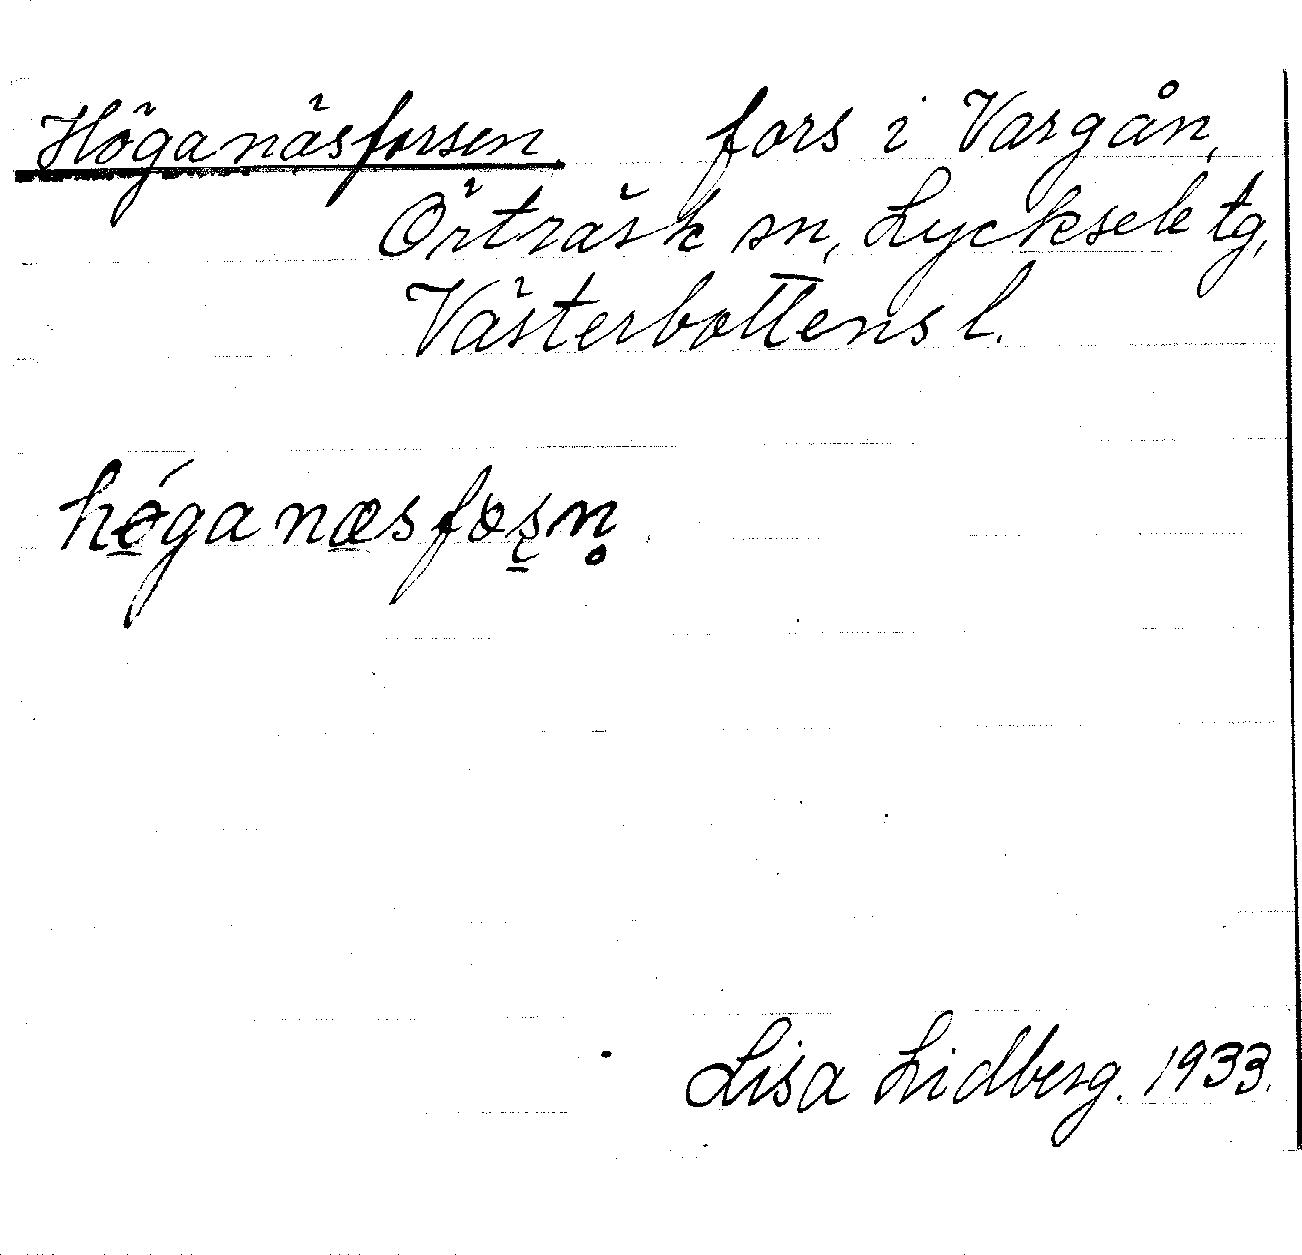 Höganäsforsen fors i Vargån,
Örträsk sn, Lycksele tg,
Västerbottens l.
hǿganæsfoʂn̥
Lisa Lidberg. 1933.